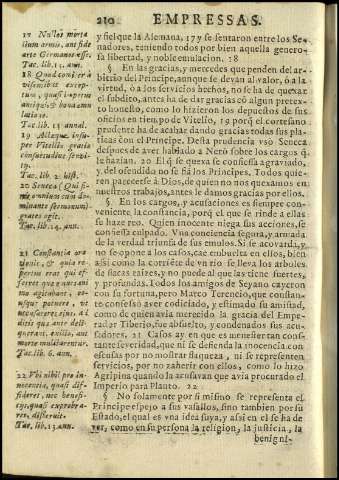 210 EMPRESSAS.
17 Nullos morta
lium armis, aut fide
ante Germanos esse.
Tac. lib. 13. ann.
18 Quod comiter à
visentibus excep-
tum, quasi impetus
antiqui, & bona æmu
latio.
Tac. lib. 13. annal.
19 Actæque insu-
per Vitellio gratiæ
consuetudine servi-
tij.
Tac. lib. 2. hist.
20 Seneca (Qui fi-
nis omnium cum do-
minante sermonum)
grates agit.
Tac. lib. 14. ann.
21 Constantia ora
tionis, & quia re-
pertus erat qui ef-
ferret quæ omnes ani
mo agitabant, eo-
usque potuere, ut
accusatores eius, ad
ditis quæ ante deli-
querant, exilio, aut
morte multarentur.
Tac. lib. 6. ann.
22 Vbi nihil pro in-
nocentia, quasi dif-
fideret, nec benefi-
cijs, quasi exprobra-
ret, disseruit.
Tac. lib. 13. ann.
y fiel que la Alemana, 17 y se sentaron entre los Se-
nadores, teniendo todos por bien aquella genero-
sa libertad, y noble emulacion. 18
§ En las gracias, y mercedes que penden del ar-
bitrio del Principe, aunque se devan al valor, ó a la
virtud, ó a los servicios hechos, no se ha de quexar
el subdito, antes ha de dar gracias cõ algun pretex-
to honesto, como lo hizieron los depuestos de sus
oficios en tiempo de Vitelio, 19 porq̃ el cortesano
prudente ha de acabar dando gracias todas sus pla-
ticas con el Principe. Desta prudencia vso Seneca
despues de aver hablado à Nerõ sobre los cargos q̃
le hazian. 20 El q̃ se quexa se confiessa agraviado,
y del ofendido no se fia los Principes. Todos quie-
ren parecerse à Dios, de quien no nos quexamos en
nuestros trabajos, antes le damos gracias por ellos.
§ En los cargos, y acusaciones es siempre con-
veniente, la constancia, porq̃ el que se rinde a ellas
su haze reo. Quien inocente niega sus acciones, se
confiessa culpado. Vna conciencia segura, y armada
de la verdad triunfa de sus emulos. Si se acovarda, y
no se opone a los casos, cae embuelta en ellos, bien
assi como la corriẽte de vn rio se lleva los arboles
de flacas raizes, y no puede al que las tiene fuertes,
y profundas. Todos los amigos de Seyano cayeron
con su fortuna, pero Marco Terencio, que constan-
te confesso aver codiciado, y estimado su amistad,
como de quien avia merecido la gracia del Empe-
rador Tiberio, fue absuelto, y condenados sus acu-
sadores. 21 Casos ay en que es menester tan cons-
tante severidad, que ni se defienda la inocencia con
escusas por no mostrar flaqueza, ni se representen
servicios, por no zaherir con ellos, como lo hizo
Agripina quando la acusavan que avia procurado el
Imperio para Plauto. 22
§ No solamente por si mismo se representa el
Principe espejo a sus vasallos, sino tambien por su
Estado, el qual es vna idea suya, y assi en el se ha de
ver, como en su persona la religion, la justicia, la
benigni-